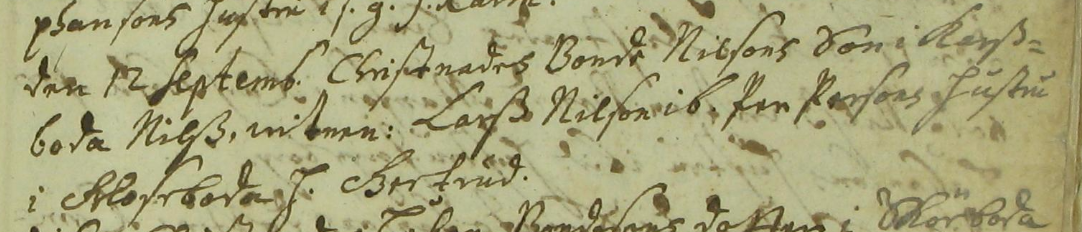 phansons Hustru i s. g. J. Karin.
den 12 Septemb. Christnades Bonde Nilsons Son i Karß=
boda Nilß, witnen: Larß Nilson ib. Per Persons Hustru
i Klosrboda H. Gertrud.
Bondesons dotter i Skörboda